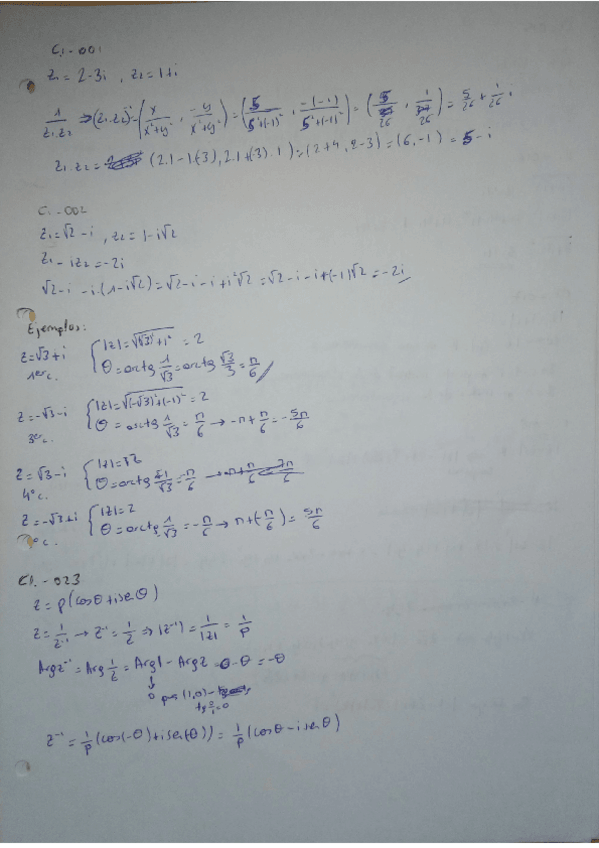 C1-001
z₁ = 2-3i , z₂ = 1+i
1/(z₁.z₂) ⇒ (z₁.z₂)⁻¹ = (x/(x²+y²) , -y/(x²+y²)) = (5/(5²+(-1)²) , -(-1)/(5²+(-1)²)) = (5/26 , 1/26) = 5/26 + 1/26 i
z₁.z₂ = (2.1-1.(-3), 2.1+(-3).1) = (2+4, 2-3) = (6,-1) = 5-i
C1-002
z₁ = √2-i , z₂ = 1-i√2
z₁ - iz₂ = -2i
√2-i -i.(1-i√2) = √2-i-i+i²√2 = √2-i-i+(-1)√2 = -2i
Ejemplos:
z = √3+i { |z| = √((√3)²+1²) = 2
1er c. θ = arctg 1/√3 = arctg √3/3 = π/6
z = -√3-i { |z| = √((-√3)²+(-1)²) = 2
3er c. θ = arctg 1/√3 = π/6 → -π+π/6 = -5π/6
z = √3-i { |z| =
4º c. θ = arctg -1/√3 = -π/6
z = -√3+i { |z| = 2
º c. θ = arctg 1/√3 = -π/6 → π+(-π/6) = 5π/6
C1.-023
z = ρ(cosθ+isenθ)
z = 1/z⁻¹ → z⁻¹ = 1/z ⇒ |z⁻¹| = 1/|z| = 1/ρ
Arg z⁻¹ = Arg 1/z = Arg 1 - Arg z = 0-θ = -θ
↓
0 (1,0)
tg 0/1 = 0
z⁻¹ = 1/ρ (cos(-θ)+isen(-θ)) = 1/ρ (cosθ-isenθ)